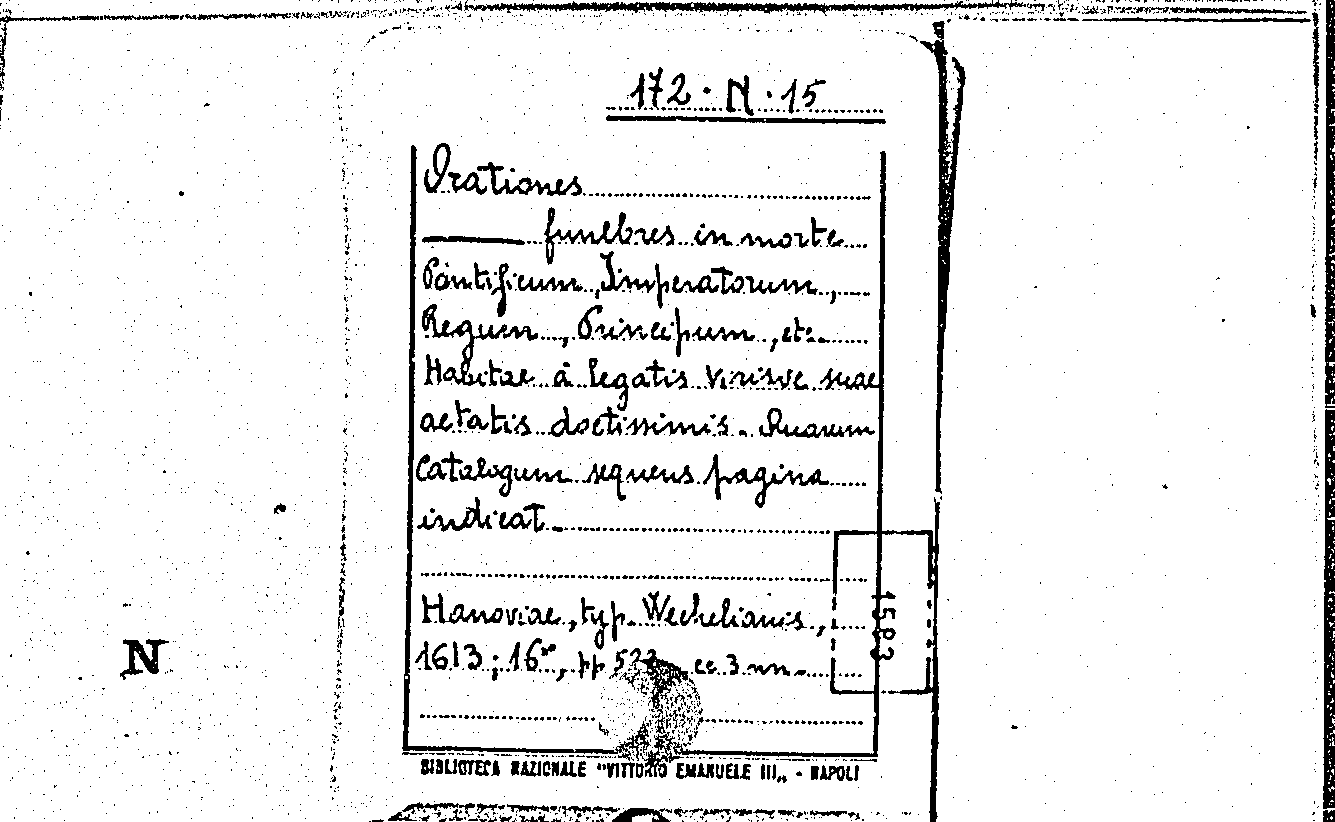 172 · N · 15
Orationes
funebres in morte
Pontificum, Imperatorum,
Regum, Principum, etc.
Habitae à legatis virisve suae
aetatis doctissimis. Quarum
catalogum sequens pagina
indicat.
Hanoviae, typ. Wechelianis,
1613; 16°, pp cc 3 nn.
1583
N
BIBLIOTECA NAZIONALE "VITTORIO EMANUELE III„ - NAPOLI